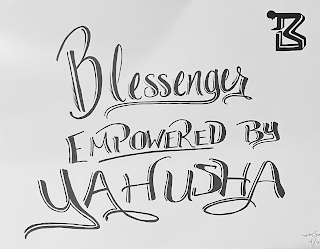 Blessenger
EMPOWERED By
YAHUSHA